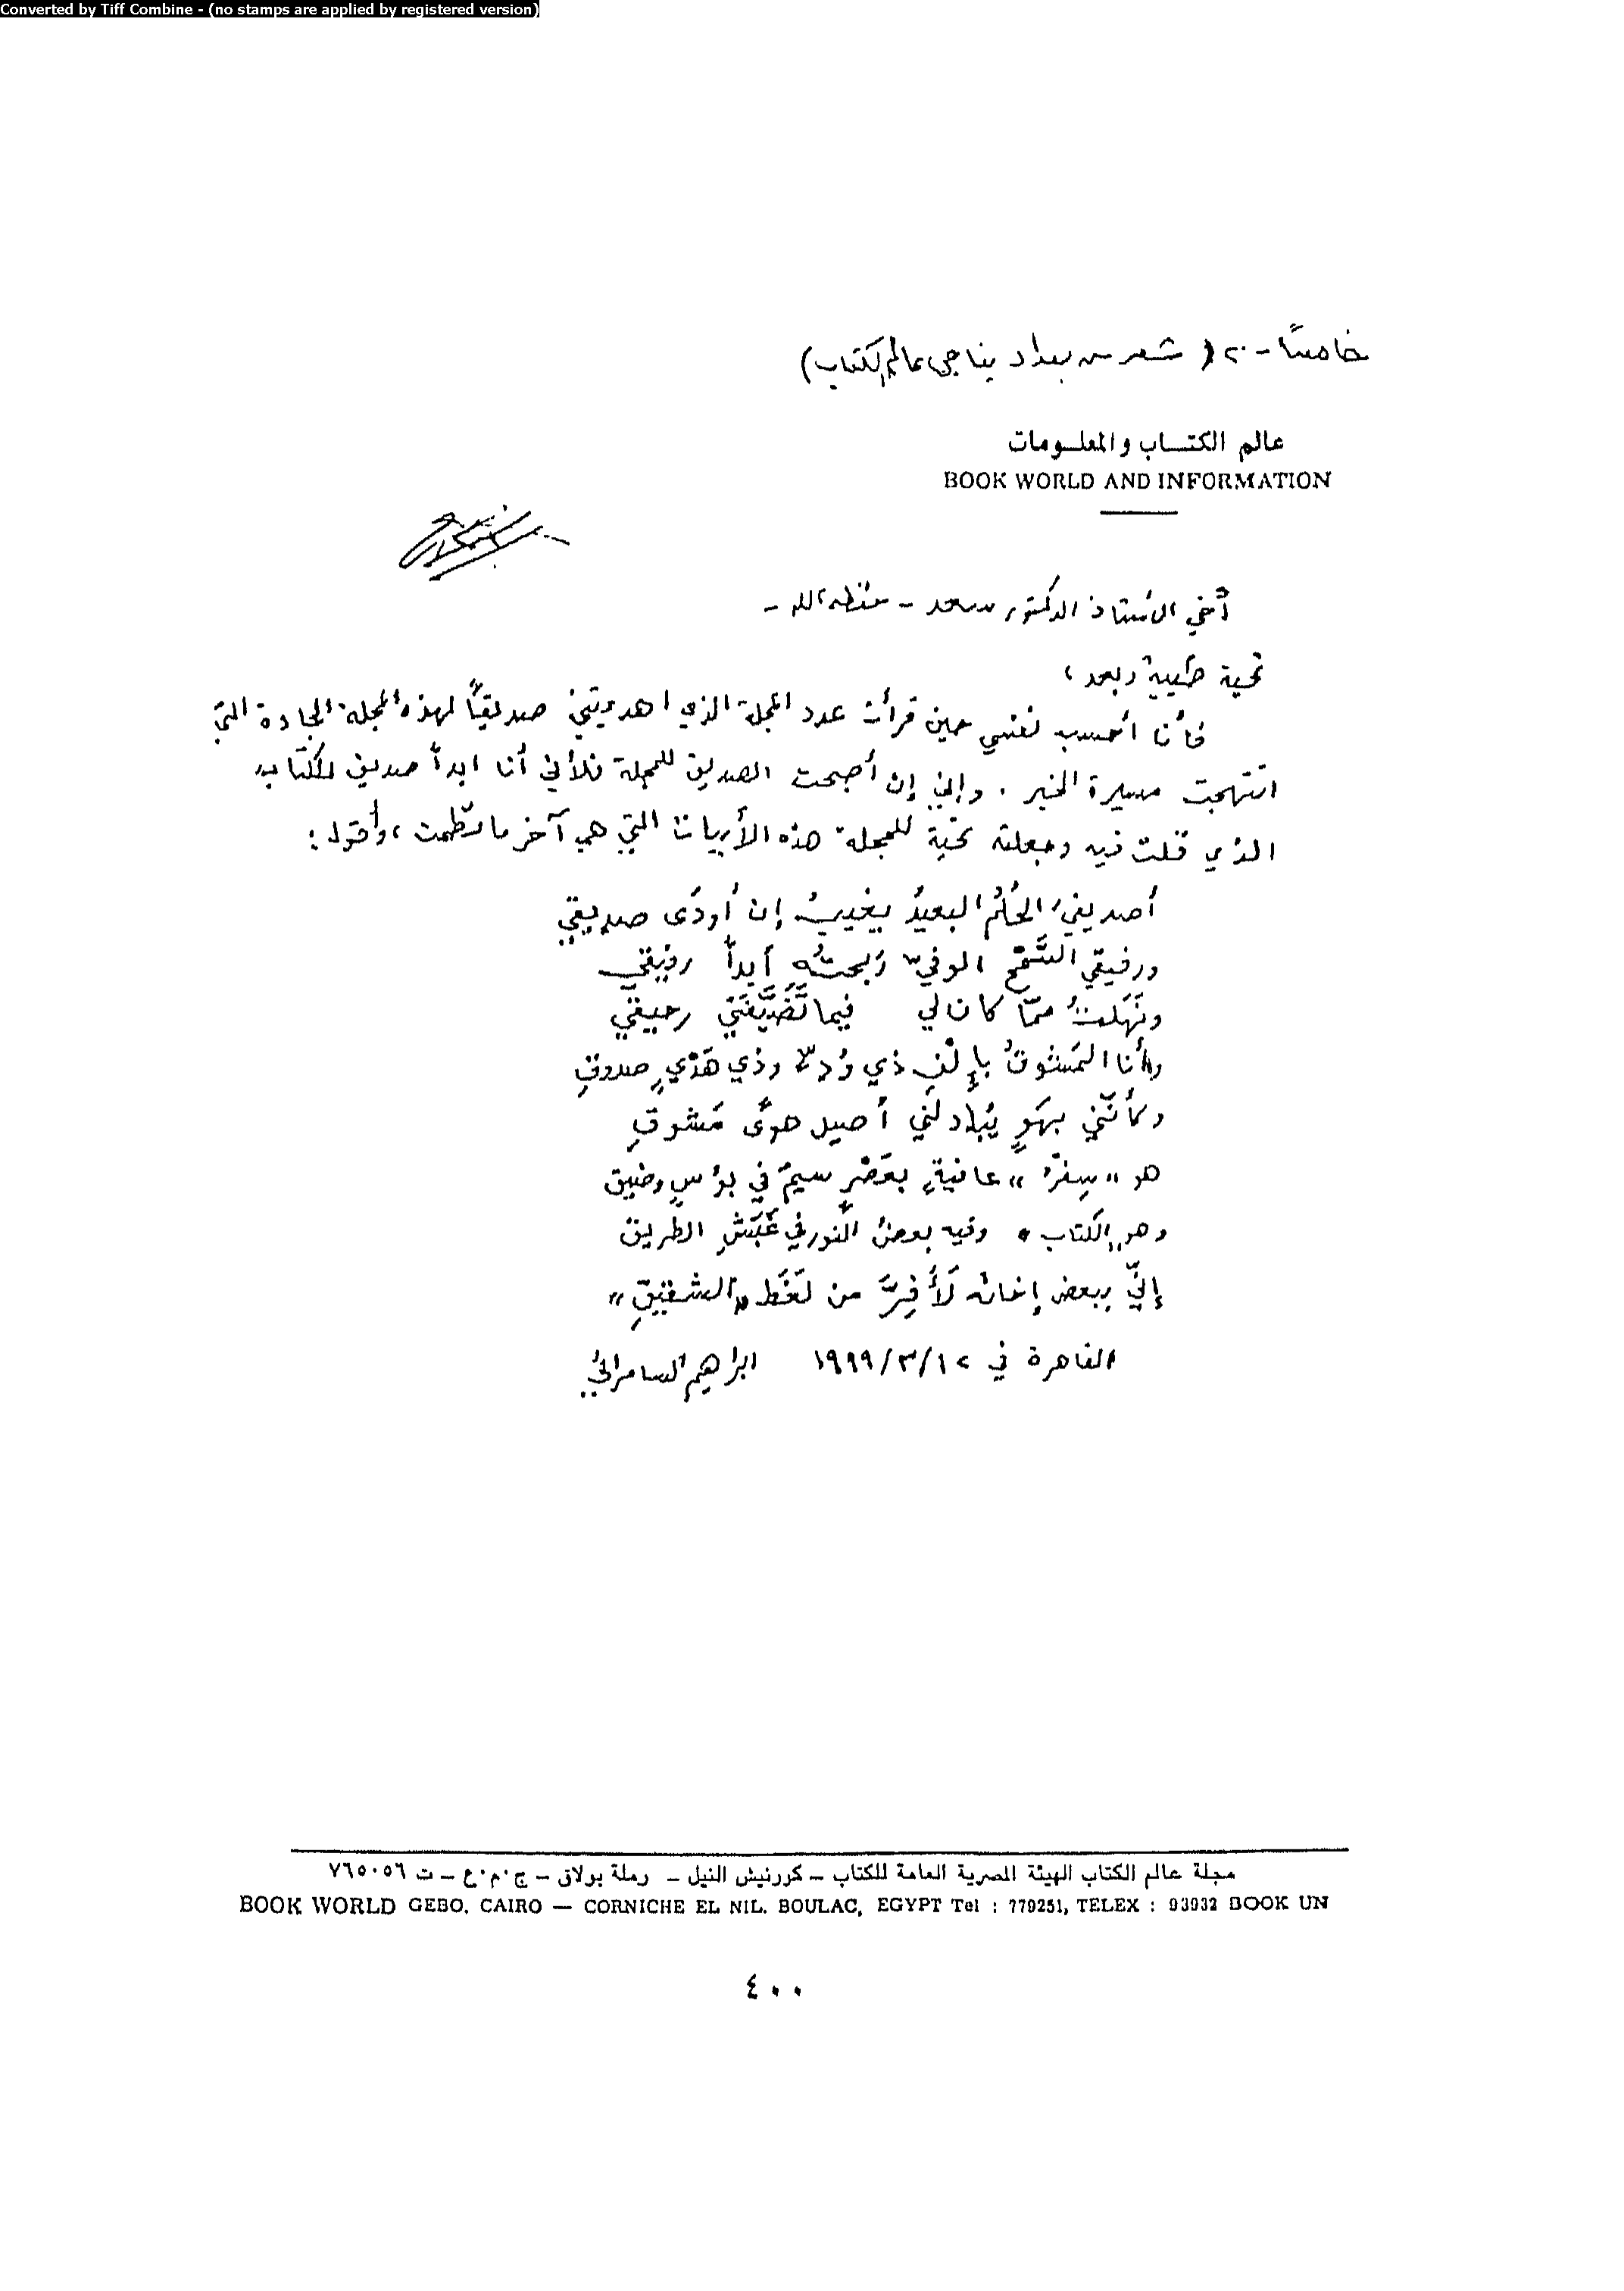 Converted by Tiff Combine - (no stamps are applied by registered version)
خامسًا - ٢٠ ( شعر من بغداد يناجي عالم الكتاب)
عالم الكتـــاب والمعلـــومات
BOOK WORLD AND INFORMATION
أخي الأستاذ الدكتور سعد - حفظه الله -
تحية طيبة وبعد ،
فأنا أحسب نفسي حين قرأت عدد المجلة الذي اهديتني صديقاً لهذه المجلة الجادة التي
انتهجت مسيرة الخير . وإني إن أصبحت الصديق للمجلة فلأني أنا ابداً صديق الكتاب
الذي قلت فيه وجعلته تحية للمجلة هذه الأبيات التي هي آخر ما نظمت ، وأقول :
أصديقيَ الحُلُمُ البعيدُ يغيبُ إن أودَى صديقي
ورفيقي السَّمْحُ الوفيّ رَبحتُه أبداً رفيقي
ونَهَلتُ ممّا كان لي فيما تَضَيَّفَني رحيقي
وأنا المَشوقُ بإلْفِ ذي وُدٍّ وذي هَدْيٍ صدوقِ
وكأنّني بهَوٍ يُبادلني أصيل هوًى مَشوقِ
هو "سِفرُ" عافيةٍ بعَصْرٍ سيمَ في بؤسٍ وضيق
وهو "الكتاب" وفيه بعضُ النّور في غَبَشِ الطريق
إنّي ببعض إخائه لَأَفِرُّ من لَغَط "الشقيقِ"
القاهرة في ١٢/٣/١٩٩٩ ابراهيم السامرائي
مجلة عالم الكتاب الهيئة المصرية العامة للكتاب – كورنيش النيل – رملة بولاق – ج٠م٠ع – ت ٧٦٥٠٥٦
BOOK WORLD GEBO. CAIRO — CORNICHE EL NIL. BOULAC, EGYPT Tel : 779251, TELEX : 93932 BOOK UN
٤٠٠